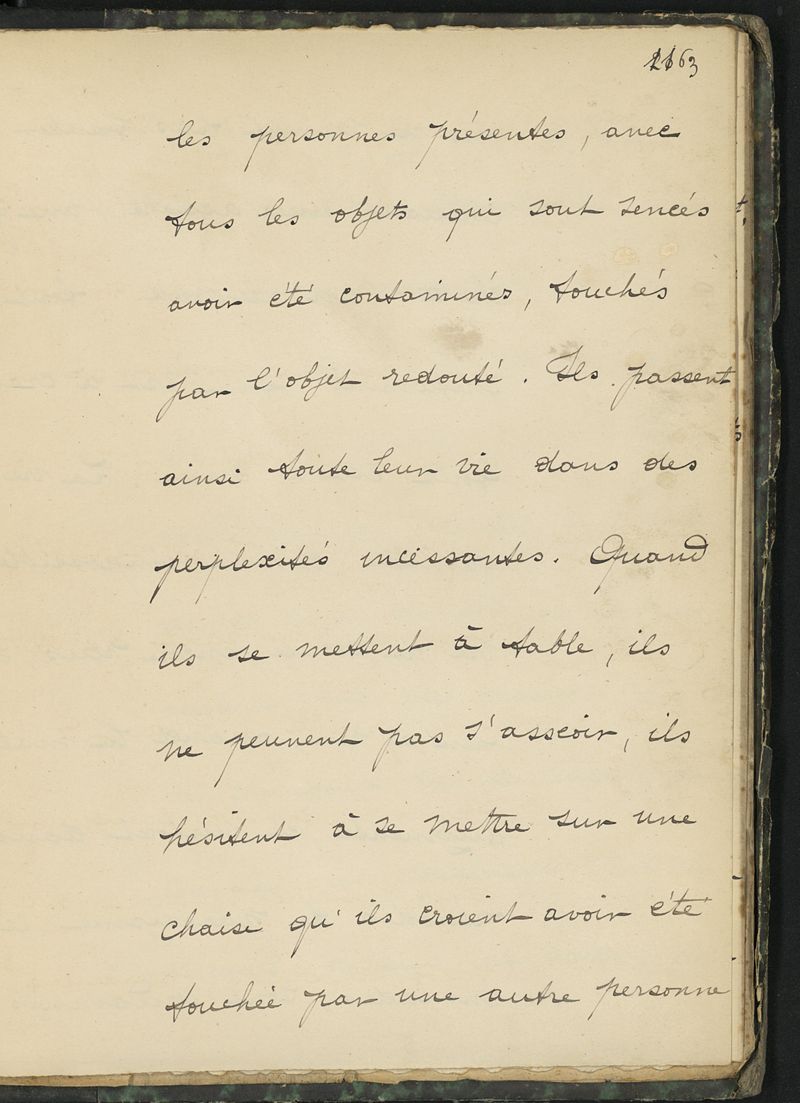 les personnes présentes, avec
tous les objets qui sont sencés
avoir été contaminés, touchés
par l'objet redouté. Ils passent
ainsi toute leur vie dans des
perplexités incessantes. Quand
ils se mettent à table, ils
ne peuvent pas s'asseoir, ils
hésitent à se mettre sur une
chaise qu'ils croient avoir été
touchée par une autre personne